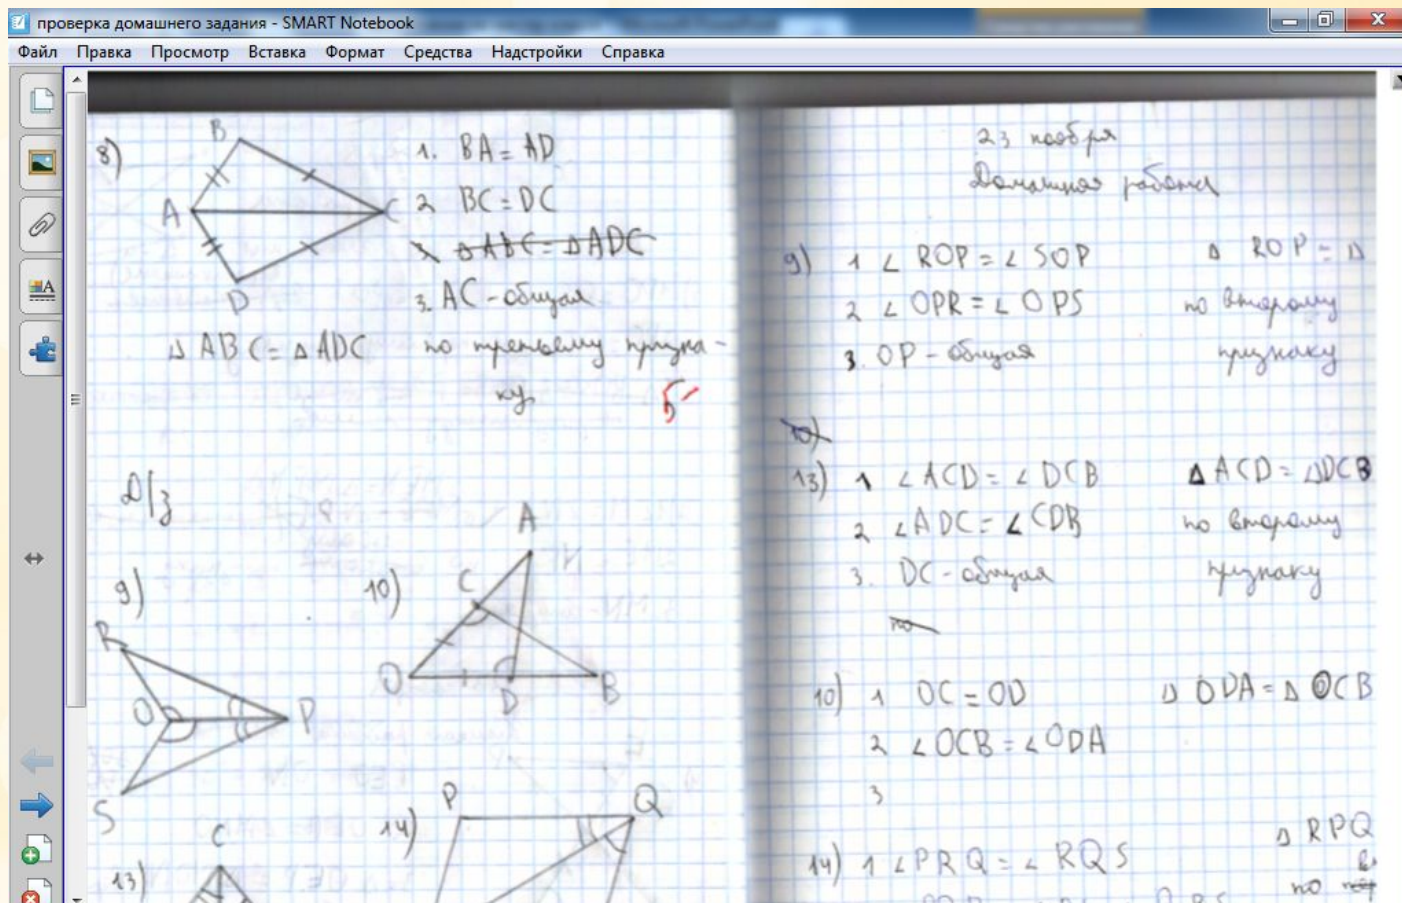 проверка домашнего задания - SMART Notebook
Файл Правка Просмотр Вставка Формат Средства Надстройки Справка
8)
B
A
C
D
1. BA = AD
2 BC = DC
∆ ABC = ∆ ADC
3. AC - общая
∆ ABC = ∆ ADC по третьему призна-
ку
5-
Д/з
9)
R
O
P
S
10)
A
C
O
D
B
13)
C
14)
P
Q
23 ноября
Домашняя работа
9) 1 ∠ ROP = ∠ SOP ∆ ROP = ∆
2 ∠ OPR = ∠ OPS по второму
3. OP - общая признаку
10)
13) 1 ∠ ACD = ∠ DCB ∆ ACD = ∆ DCB
2 ∠ ADC = ∠ CDB по второму
3. DC - общая признаку
по
10) 1 OC = OD ∆ ODA = ∆ OCB
2 ∠ OCB = ∠ ODA
3
14) 1 ∠ PRQ = ∠ RQS ∆ RPQ
по